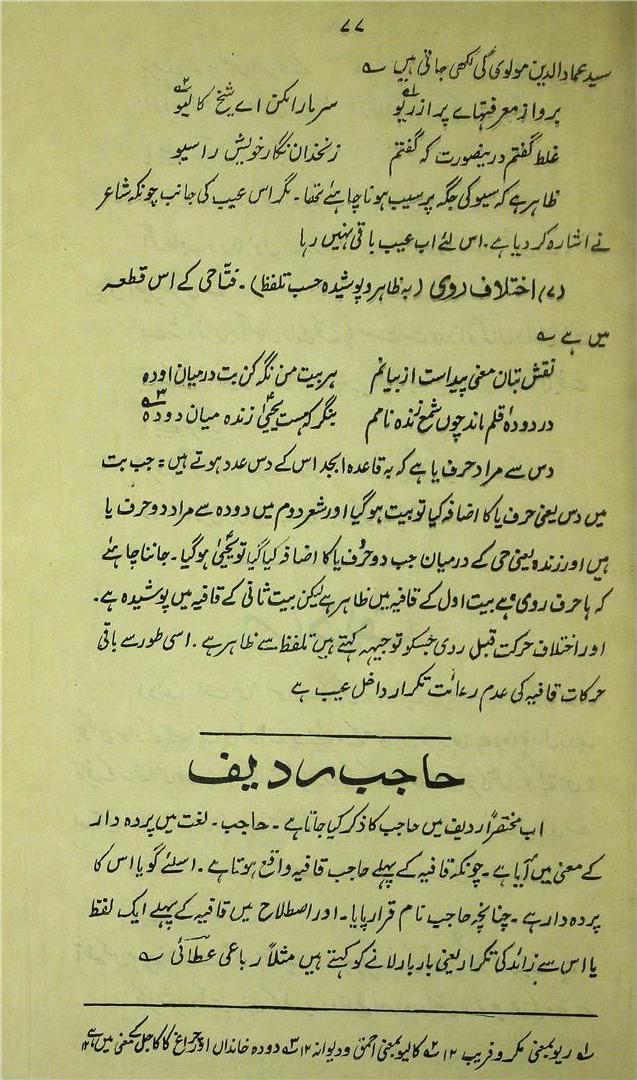 ۷۷
سید عماد الدین مولوی کی لکھی جاتی ہیں ؎
پرواز معرفتہاے پر از ریو سرمارا مکن اے شیخ کالیو
غلط گفتم دریںصورت کہ گفتم زنخدان نگار خویش را سیو
ظاہر ہے کہ سیو کی جگہ پر سیب ہونا چاہئے تھا۔ مگر اس عیب کی جانب چونکہ شاعر
نے اشارہ کر دیا ہے۔ اس لئے اب عیب باقی نہیں رہا
(۷) اختلاف روی (بہ ظاہر و پوشیدہ حسب تلفظ)۔ فتّاحی کے اس قطعہ
میں ہے ؎
نقش بتان معنی پیداست از بیانم ہر بیت من نگر کن بت درمیان او دہ
در دودۂ قلم ماند چوں شمع زندہ نامم بنگر کہ ہست یحییٰ زندہ میان دودہ
دس سے مراد حرف یا ہے کہ بہ قاعدہ ابجد اس کے دس عدد ہوتے ہیں = جب بت
میں دس یعنی حرف یا کا اضافہ کیا تو بیت ہو گیا اور شعر دوم میں دودہ سے مراد دو حرف یا
ہیں اور زندہ یعنی حی کے درمیان جب دو حرف یا کا اضافہ کیا گیا تو یحییٰ ہو گیا۔ جاننا چاہئے
کہ ہا حرف روی ہے بیت اول کے قافیہ میں ظاہر ہے لیکن بیت ثانی کے قافیہ میں پوشیدہ ہے۔
اور اختلاف حرکت قبل روی جسکو توجیہہ کہتے ہیں تلفظ سے ظاہر ہے۔ اسی طور سے باقی
حرکات قافیہ کی عدم رعائت تکرار داخل عیب ہے
حاجب ردیف
اب مختصراً ردیف میں حاجب کا ذکر کیا جاتا ہے۔ حاجب۔ لغت میں پردہ دار
کے معنی میں آیا ہے۔ چونکہ قافیہ کے پہلے حاجب قافیہ واقع ہوتا ہے۔ اسلئے گویا اس کا
پردہ دار ہے۔ چنانچہ حاجب نام قرار پایا۔ اور اصطلاح میں قافیہ کے پہلے ایک لفظ
یا اس سے زائد کی تکرار یعنی بار بار لانے کو کہتے ہیں مثلاً رباعی عطائی ؎
۱؎ ریو بمعنی مکر و فریب ۱۲ ۲؎ کالیو بمعنی احمق و دیوانہ ۱۲ ۳؎ دودہ خاندان اور چراغ کا کاجل کے معنی میں ہے ۱۲